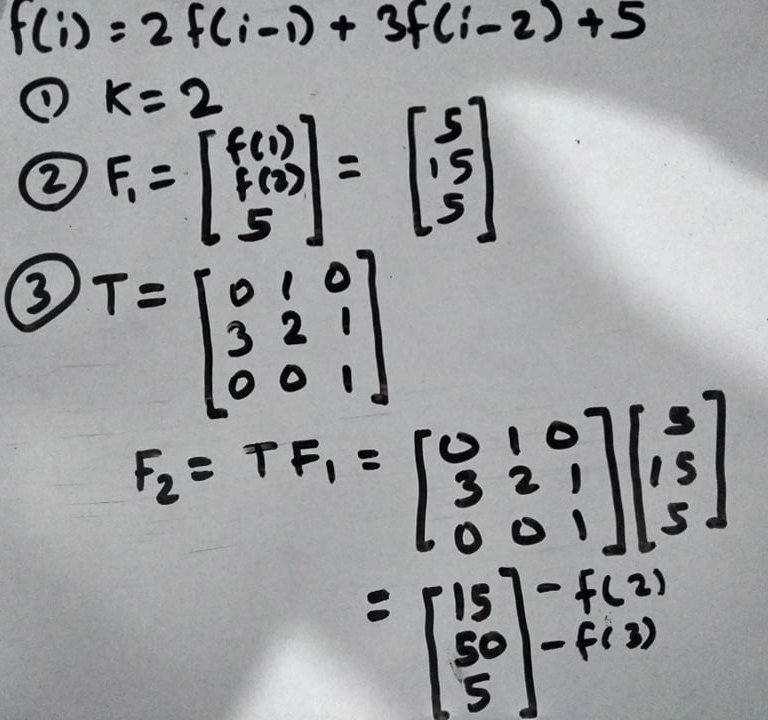 f(i) = 2 f(i-1) + 3f(i-2) + 5
① K = 2
② F₁ = [f(1) f(2) 5] = [5 15 5]
③ T = [0 1 0
3 2 1
0 0 1]
F₂ = T F₁ = [0 1 0 3 2 1 0 0 1] [5 15 5]
= [15 50 5] - f(2) - f(3)